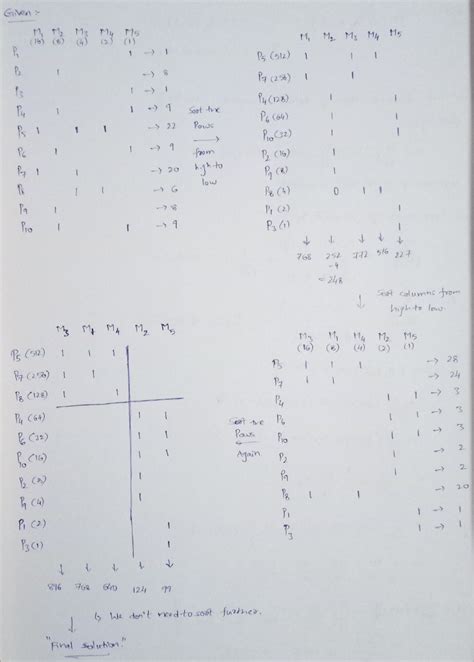 Given :-
M1 M2 M3 M4 M5
(16) (8) (4) (2) (1)
P1 1 → 1
P2 1 → 8
P3 1 → 1
P4 1 1 → 9
P5 1 1 1 → 22
P6 1 1 → 9
P7 1 1 → 20
P8 1 1 → 6
P9 1 → 8
P10 1 1 → 9
Sort the
Rows
from
high to
low
M1 M2 M3 M4 M5
P5 (512) 1 1 1
P7 (256) 1 1
P4 (128) 1 1
P6 (64) 1 1
P10 (32) 1 1
P2 (16) 1
P9 (8) 1
P8 (4) 0 1 1
P1 (2) 1
P3 (1) 1
768 252 772 516 227
-4
= 248
Sort columns from
high to low
M3 M1 M4 M2 M5
(16) (8) (4) (2) (1)
P5 1 1 1 → 28
P7 1 1 → 24
P4 1 1 → 3
P6 1 1 → 3
P10 1 1 → 3
P2 1 → 2
P9 1 → 2
P8 1 1 → 20
P1 1 → 1
P3 1 → 1
Sort the
Rows
Again
M3 M1 M4 M2 M5
P5 (512) 1 1 1
P7 (256) 1 1
P8 (128) 1 1
P4 (64) 1 1
P6 (32) 1 1
P10 (16) 1 1
P2 (8) 1
P9 (4) 1
P1 (2) 1
P3 (1) 1
896 768 640 124
We don't need to sort further.
"Final solution."